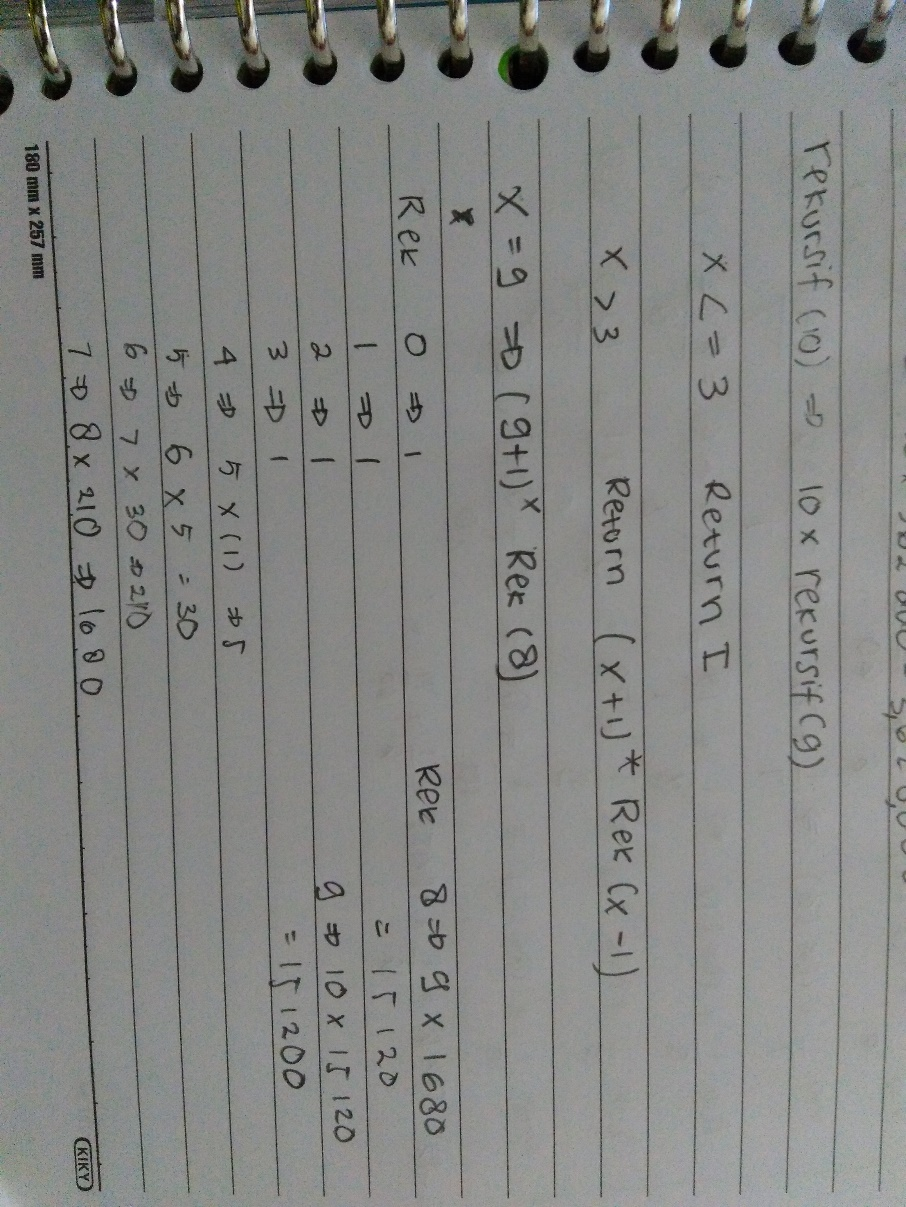 rekursif (10) ⇒ 10 x rekursif (9)
x <= 3 Return I
x > 3 Return (x+1) * Rek (x-1)
x = 9 ⇒ (9+1) x Rek (8)
Rek 0 ⇒ 1
1 ⇒ 1
2 ⇒ 1
3 ⇒ 1
4 ⇒ 5 x (1) ⇒ 5
5 ⇒ 6 x 5 = 30
6 ⇒ 7 x 30 ⇒ 210
7 ⇒ 8 x 210 ⇒ 1680
Rek 8 ⇒ 9 x 1680
= 15120
9 ⇒ 10 x 15120
= 151200
180 mm x 257 mm
KIKY